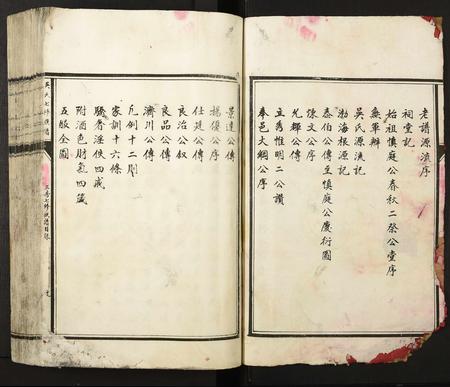 老譜源流序
祠堂記
始祖慎庭公春秋二祭公堂序
無軍辦
吳氏源流記
渤海根源記
泰伯公傳至慎庭公慶衍圖
陳文公序
允郷公傳
立為惟明二公讃
奉邑大綱公序
景達公傳
楊僕公序
仕廷公傳
良治公叙
良品公傳
濟川公傳
凡例十二則
家訓十六條
驕奢淫佚四戒
附酒色財氣四箴
五服全圖
吳氏七修族譜